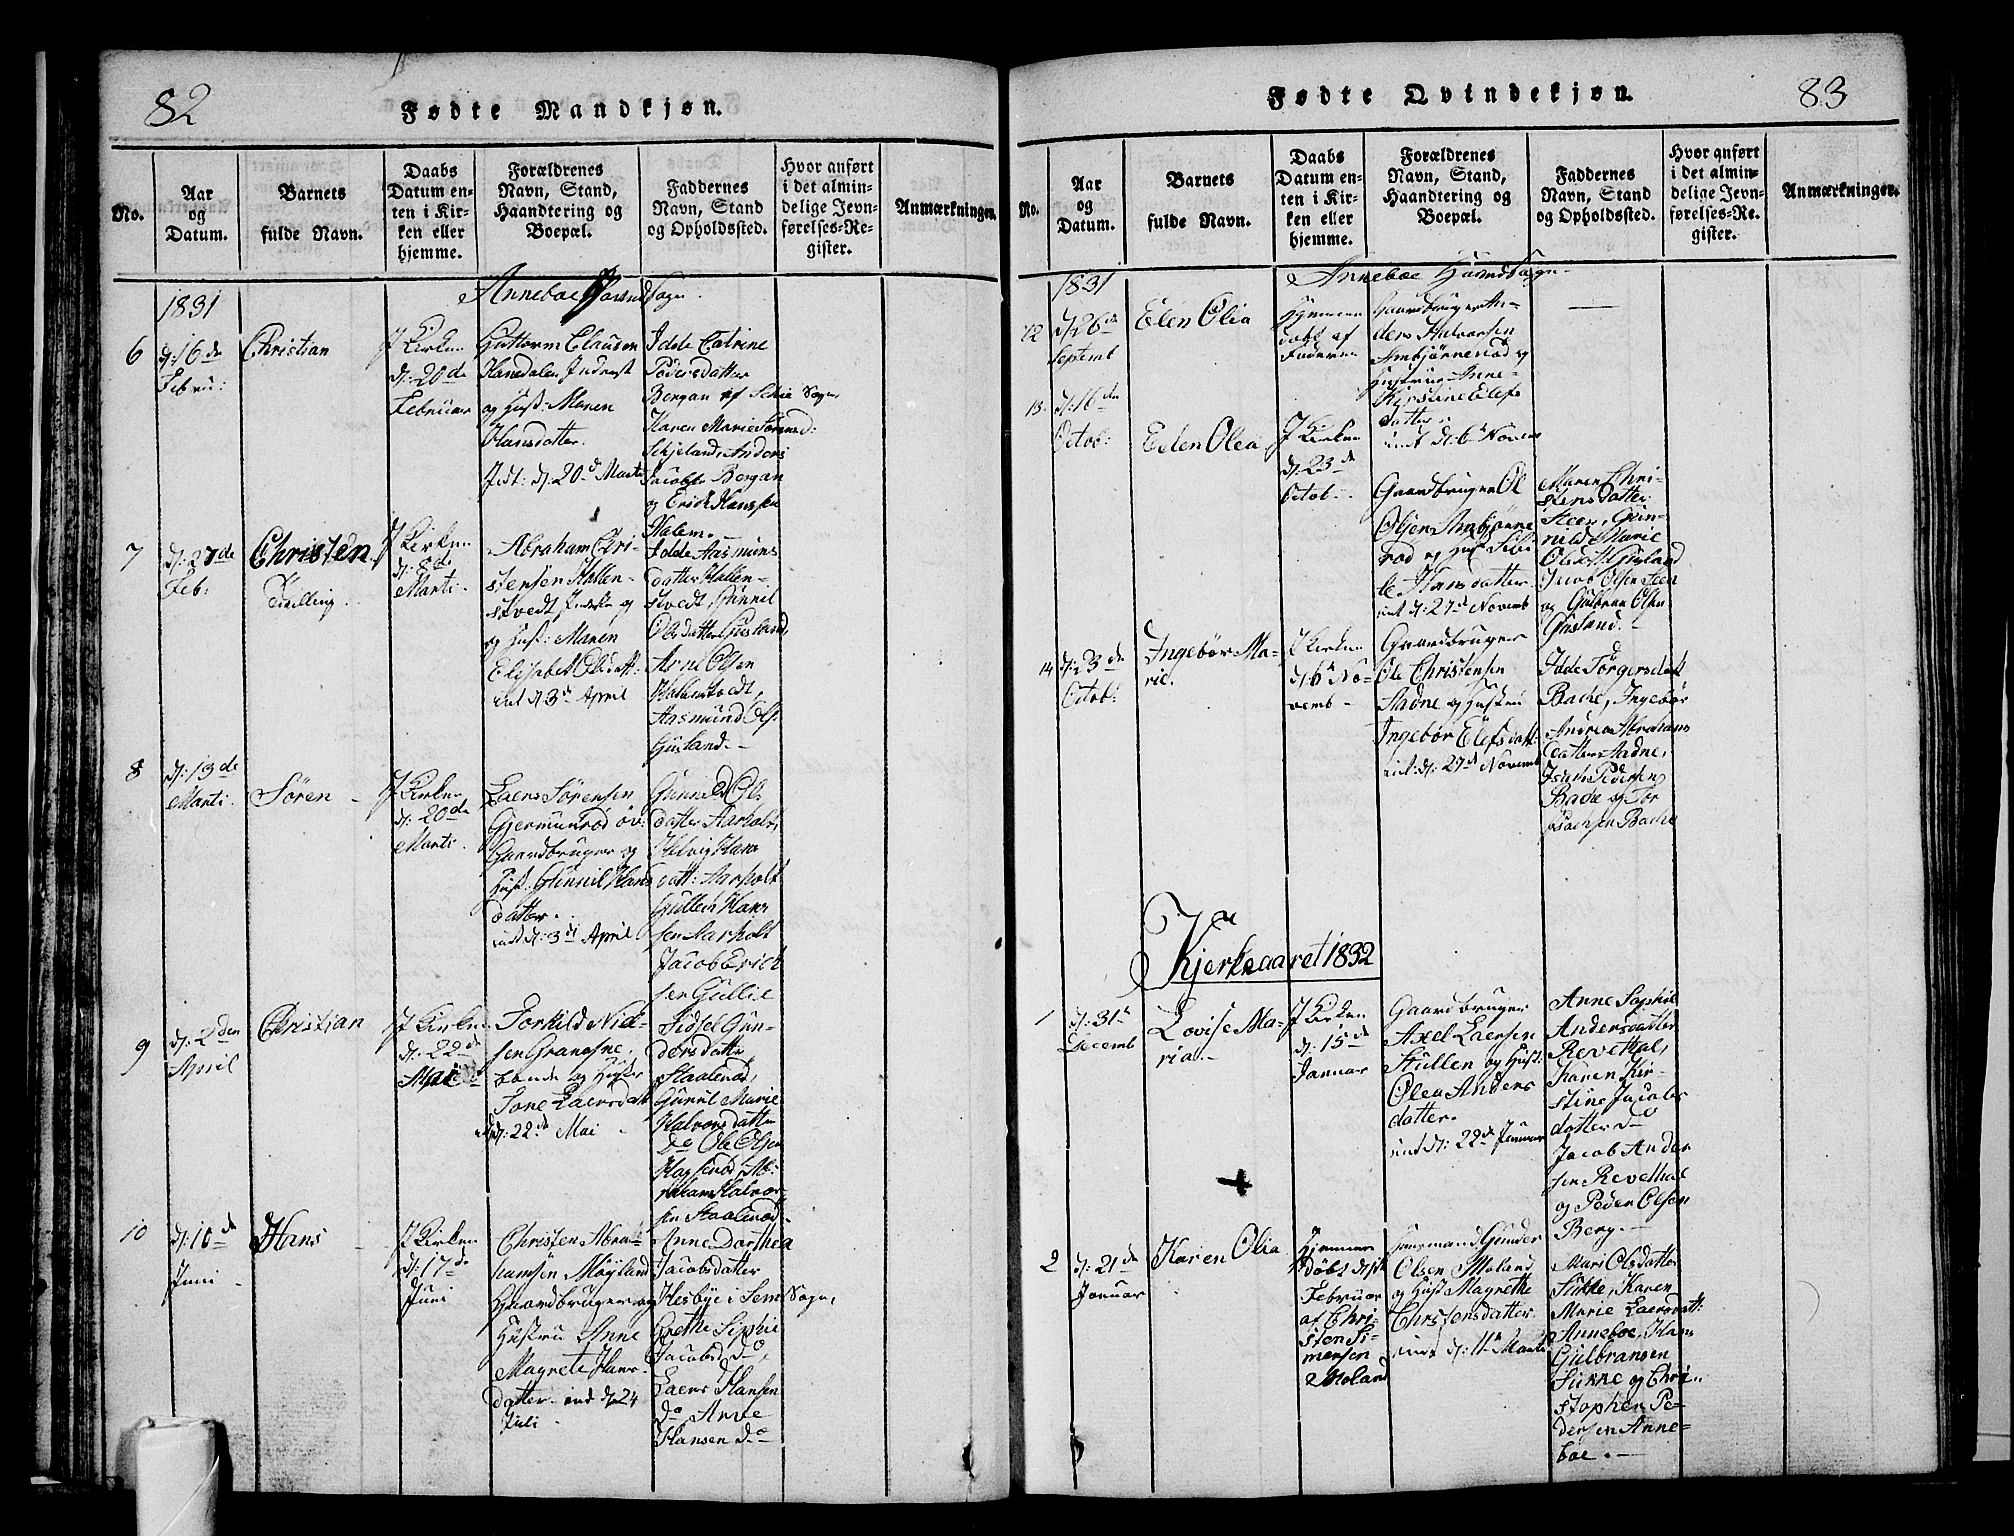 82
Fødte Mandkjøn.
No.
Aar
og
Datum.
Barnets
fulde Navn.
Daabs
Datum en-
ten i Kir-
ken eller
hjemme.
Forældrenes
Navn, Stand,
Haandtering og
Boepæl.
Faddernes
Navn, Stand
og Opholdssted.
Hvor anført
i det almin-
delige Jevn-
førelses-Re-
gister.
Anmærkninger.
Anneboe Sogn
1831
6
d: 16de
Febru:
Christian
I Kirken
d: 20de
Februar
Guttorm Clausen
Hansdalen Inderst
og Hust: Maren
Hansdatter.
d: 20d Marti
Idde Catrine
Pedersdatter
Bergan af Schie Sogn,
Karen Marie
Schjeland, Anders
Jacobs Bergan
og Erich
Halem.
7
d: 27de
Feb:
Christen
Tvilling.
I Kirken
d: 8de
Marti.
Abraham Chri-
stensen Hallen-
stvedt, og
og Hust: Maren
Elisabet
d 3d April
Idde Aasmuns
datter Hallen-
stvedt, Gunnil
Olsdatter Gusland,
Arne Olsen
Aasmund Ols:
Gusland.
8
d: 13de
Marti.
Søren
I Kirken
d: 20de
Marti.
Laers Sørensen
Gjermunrød
Gaardbruger og
Hust. Gunnil Hans
datter.
d: 3d April
Gunnild Ol:
datter Aarholt,
Helvig Hans
datt: Aarholt
Gullich Hans
sen Aarholt
Jacob Erich
sen Gullie
9
d: 2den
April
Christian
I Kirken
d: 22de
Mai
Torkild Niel-
sen
bonde og Hustru
Tone Laersdatt
d: 22de Mai
Sidsel Gun-
dersdatter
Staalerød,
Gunil Marie
Halvorsdatter
Do Ole Olsen
Ab-
raham Halvor-
sen Staalerød.
10
d: 10de
Juni
Hans
I Kirken
d: 17de
Juni
Christen Abra-
hamsen Møyland
Gaardbruger og
Hustru Anne
Magrete Hans
datter. d 24
Juli
Anne Dorthea
Jacobsdatter
Hesbye i Sem Sogn,
Grethe Sophie
Jacobsd do,
Laers Hansen
do, Arne
Hansen do
83
Fødte Qvindekjøn.
No.
Aar
og
Datum.
Barnets
fulde Navn.
Daabs
Datum en-
ten i Kir-
ken eller
hjemme.
Forældrenes
Navn, Stand,
Haandtering og
Boepæl.
Faddernes
Navn, Stand
og Opholdssted.
Hvor anført
i det almin-
delige Jevn-
førelses-Re-
gister.
Anmærkninger.
Anneboe Sogn
1831
12
d: 26de
Septemb
Elen Olia
Hjemme
døbt af
Faderen
Gaardbruger An-
ders Halvorsen
Ambjørnerød og
Hustrue Anne
Kirstine Elefs
datter.
d: 6 Novem
13
d: 16de
Octob:
Eelen Olea
I Kirken
d: 23de
Octob.
Gaardbruger Ol
Olsen Ambjørne
rød og Hust Sibi
le Hansdatter
d: 27d Novemb
Maren Chri-
stensdatter
Steen, Gun-
nild Marie
Olsd Gusland
Jacob Olsen Steen
og Gulbran Olsen
Gusland.
14
d: 23de
Octob:
Ingebør Ma-
rie.
I Kirken
d: 6 No-
vemb
Gaardbruger
Ole Christensen
Aadne og Hustru
Ingebør Elefsdatt:
d: 27d Novemb
Idde Torgersdatt
Bache, Ingebør
Andrea Abrahams
datter Aadne,
Isach Pedersen
Bache og Tor
Isachsen Bache
Kjerkeaaret 1832
1
d: 31te
Decemb
Lovise Ma-
ria.
I Kirken
d: 15de
Januar
Gaardbruger
Axel Laersen
Hullen og Hust:
Olea Anders
datter.
d: 22de Januar
Anne Sophie
Andersdatter
Revethal,
Karen Kir-
stine Jacobs
datter do
Jacob Ander
sen Revethal
og Peder Olsen
Berg.
2
d: 21de
Januar
Karen Olia
Hjemme
døbt
Februar
af Chri-
sten Si-
mensen
Moland
Huusmand Gunder
Olsen Moland
og Hust Magrethe
Christensdatter
d: 11te Marti
Mari Olsdatter
Sukke, Karen
Marie Laersdatt:
Anneboe, Hans
Gulbransen
Sukke og Chri-
stopher Pe-
dersen Anne-
boe.